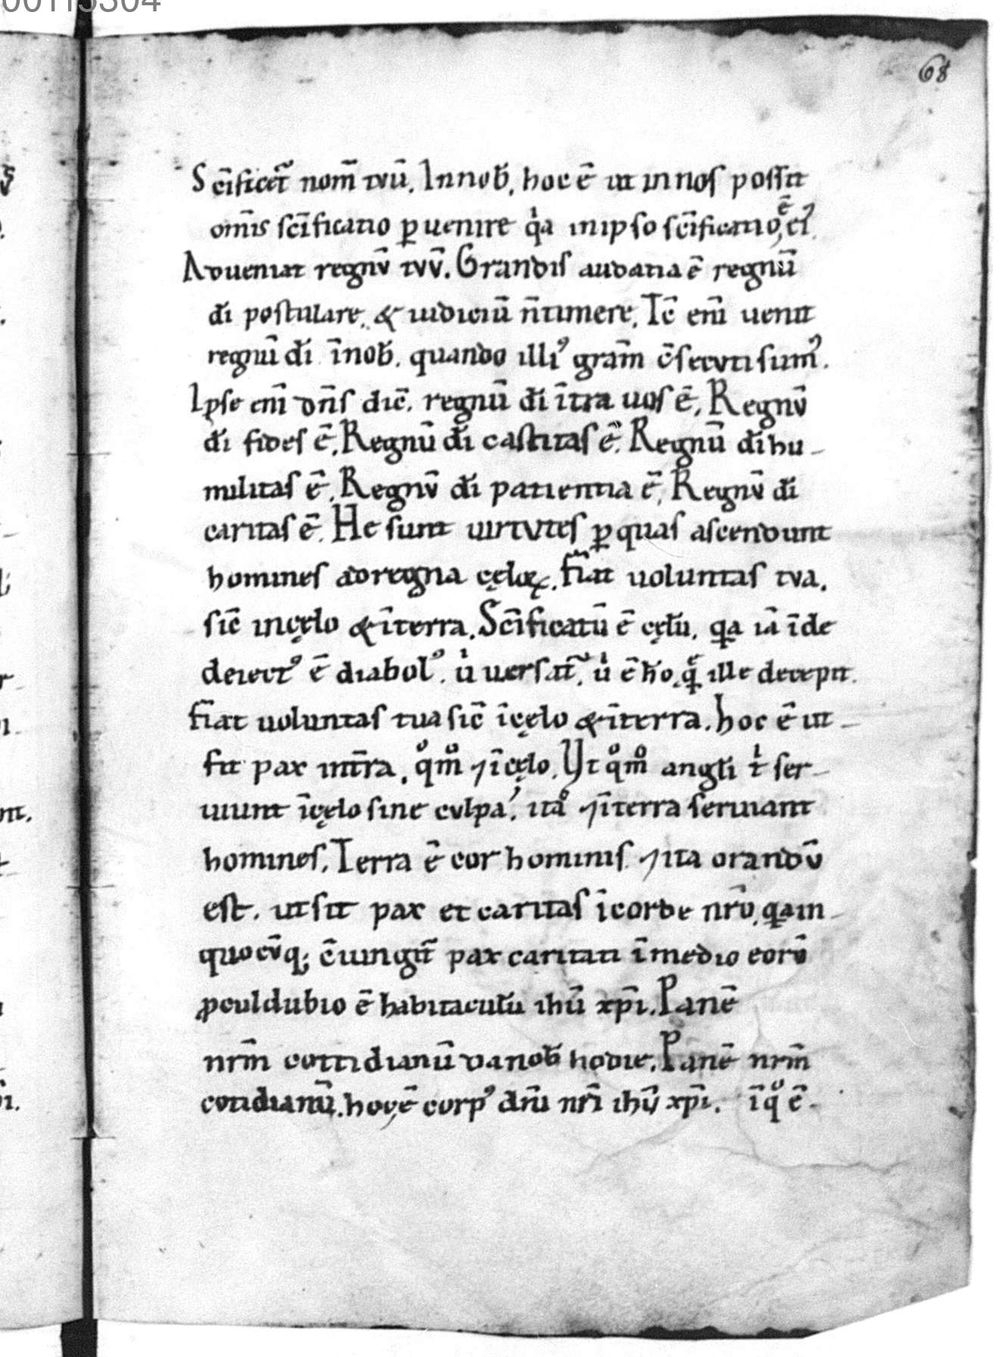 00115304
68
Scīficet᷑ nom̄ tuū. In nob̄. hoc ē ut in nos possit
om̄is scīficatio ꝑuenire qͥa in ipso scīficatio ē, ei᷒.
Adueniat regnū tuū. Grandis audatia ē regnū
dī postulare, & iudiciū n̄ timere. Tc̄ enī uenit
regnū dī in nob̄. quando illi᷒ gram̄ c̄secuti sum᷒.
Ipse enī dn̄s dic̄. regnū dī īt̄ra uos ē. Regnū
dī fides ē. Regnū dī castitas ē. Regnū dī hu-
militas ē. Regnū dī patientia ē, Regnū dī
caritas ē. He sunt uirtutes ꝑ quas ascendunt
homines ad regna cęloꝝ. fīat uoluntas tua.
sic̄ in cęlo & īterra. Scīficatū ē cęlū. qa iā īde
deiect᷒ ē diabol᷒. uͥ uersat᷑, uͥ ē ho. q̄ ille decepit.
fīat uoluntas tua sic̄ īcęlo & īterra. hoc ē ut-
sit pax int̄ra, qͦm̊ ⁊ īcęlo. Vt qͦm̊ anglī tͥ ser-
uiunt īcęlo sine culpa, itå ⁊ īterra seruiant
homines. Terra ē cor hominis ⁊ ita orandū
est. ut sit pax et caritas īcorde nrū, qam-
quocūq; c̄iungit᷑ pax caritati īmedio eorū
ꝓculdubio ē habitaculū ihū xp̄i. Panē
nrm̄ cottidianū da nob̄ hodie. Panē nrm̄
cotidianū. hoc ē corp᷒ dn̄i nr̄i ihū xp̄i. īqͦ ē.